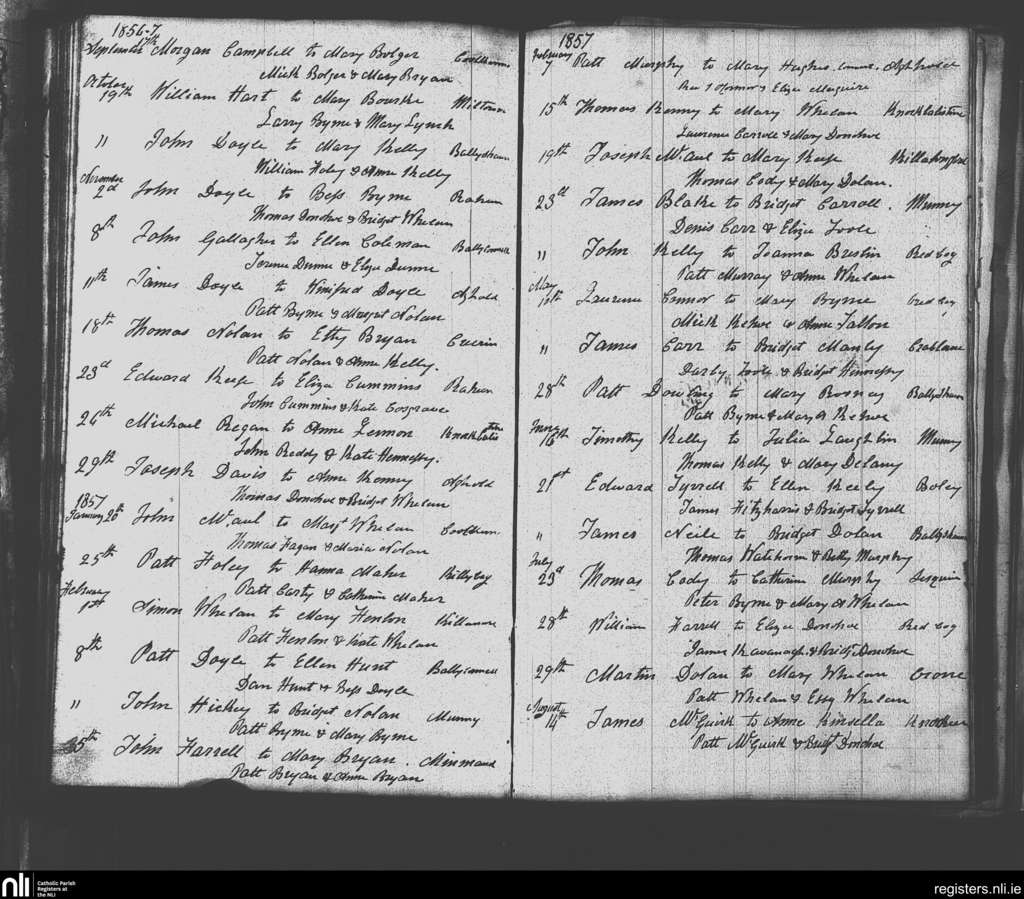 1856-7
September 17th Morgan Campbell to Mary Bolger
Mick Bolger & Mary Bryan
October 19th William Hart to Mary Bourke
Larry Byrne & Mary Lynch
" John Doyle to Mary Kelly Ballyshaun
William Foley & Anne Kelly
November 2d John Doyle to Bess Byrne Raheen
Thomas Donohoe & Bridget Whelan
8th John Gallagher to Ellen Coleman Ballyconnell
Terence Dunne & Eliza Dunne
11th James Doyle to Winifred Doyle Aghold
Patt Byrne & Margret Nolan
18th Thomas Nolan to Etty Bryan
Patt Nolan & Anne Kelly.
23d Edward Keefe to Eliza Cummins Raheen
John Cummins & Kate Cosgrave
26th Michael Regan to Anne Lennon
John Reddy & Kate Hennessy.
29th Joseph Davis to Anne Kenny Aghold
Thomas Donohoe & Bridget Whelan
1857
January 20th John McAul to Margt Whelan
Thomas Fagan & Maria Nolan
25th Patt Foley to Hanna Maher
Patt Carty & Catherine Maher
February 1st Simon Whelan to Mary Henlon
Patt Henlon & Kate Whelan
8th Patt Doyle to Ellen Hunt Ballyconnell
Dan Hunt & Bess Doyle
" John Hickey to Bridget Nolan Munny
Patt Byrne & Mary Byrne
15th John Farrell to Mary Bryan.
Patt Bryan & Anne Bryan
1857
February 7 Patt Murphy to Mary Hughes
Eliza Maguire
15th Thomas Kenny to Mary Whelan
Laurence Carroll & Mary Donohoe
19th Joseph McAul to Mary Keefe
Thomas Cody & Mary Dolan.
23d James Blake to Bridget Carroll. Munny
Denis Carr & Eliza Toole
" John Kelly to Joanna Breslin Red bog
Patt Murray & Anne Whelan
May 10th Laurence Connor to Mary Byrne red bog
Mick Kehoe & Anne Fallon
" James Carr to Bridget Manly
Darby Toole & Bridget Hennessy
28th Patt Dowling to Mary Rooney Ballyshaun
Patt Byrne & Mary A Kehoe
June 16th Timothy Kelly to Julia Laughlin Munny
Thomas Kelly & Mary Delany
21st Edward Tyrrell to Ellen Keeley Boley
James Fitzharris & Bridget Tyrrell
" James Neile to Bridget Dolan Ballyshaun
Thomas Watchorn & Betty Murphy
July 23d Thomas Cody to Catherine Murphy
Peter Byrne & Mary A Whelan
28th William Farrell to Eliza Donohoe Red bog
James Kavanagh & Bridt Donohoe
29th Martin Dolan to Mary Whelan
Patt Whelan & Essy Whelan
August 14th James McGuirk to Anne Kinsella
Patt McGuirk & Bridt Donohoe
nli Catholic Parish
Registers at
the NLI
registers.nli.ie